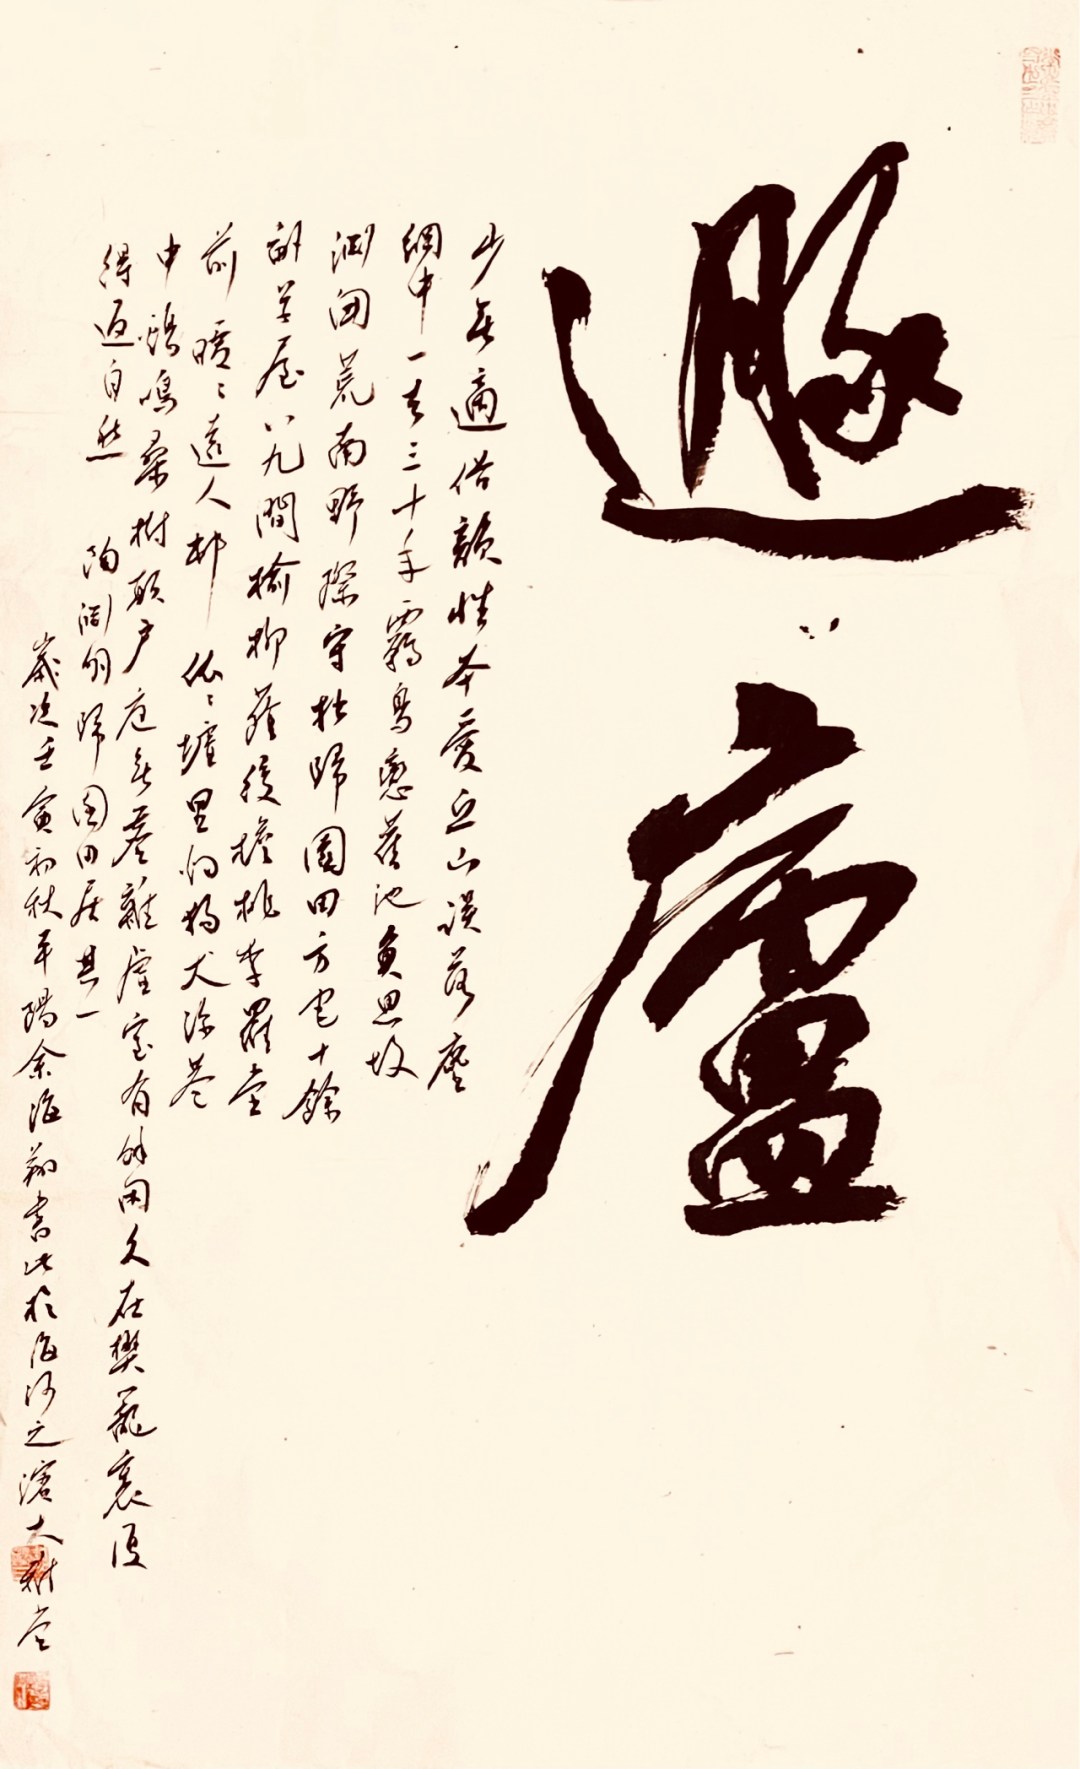 遯廬
少無適俗韻性本愛丘山誤落塵
網中一去三十年羈鳥戀舊池魚思故
淵開荒南野際守拙歸園田方宅十餘
畝草屋八九間榆柳蔭後檐桃李羅堂
前曖曖遠人村依依墟里烟狗吠深巷
中鷄鳴桑樹巔戶庭無塵雜虛室有餘閑久在樊籠裏復
得返自然 陶淵明歸園田居其一
歲次壬寅初秋平陽余海翔書此於海河之濱大樹堂